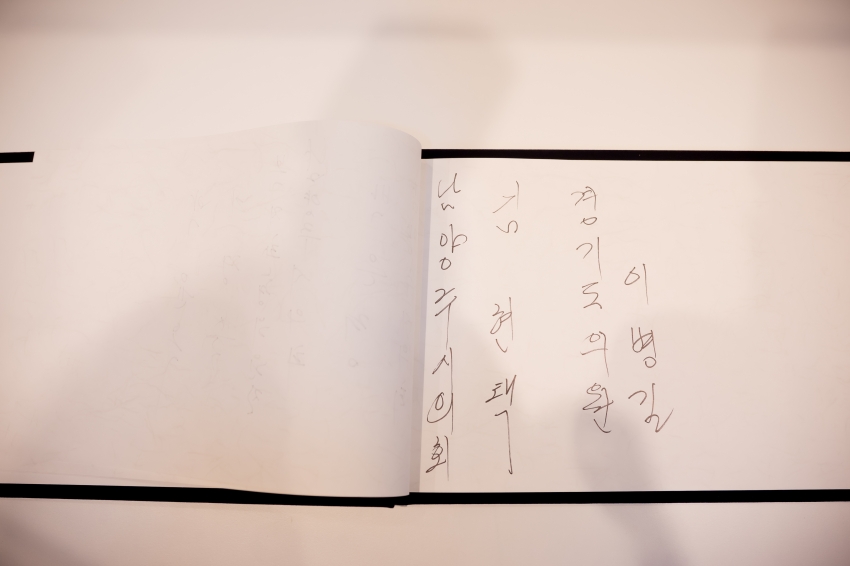 남양주시의회
김현택
경기도의원
이병길